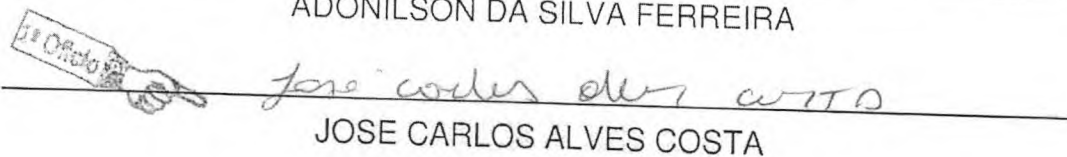 ADONILSON DA SILVA FERREIRA
1º Ofício
Jose carlos alves costa
JOSE CARLOS ALVES COSTA